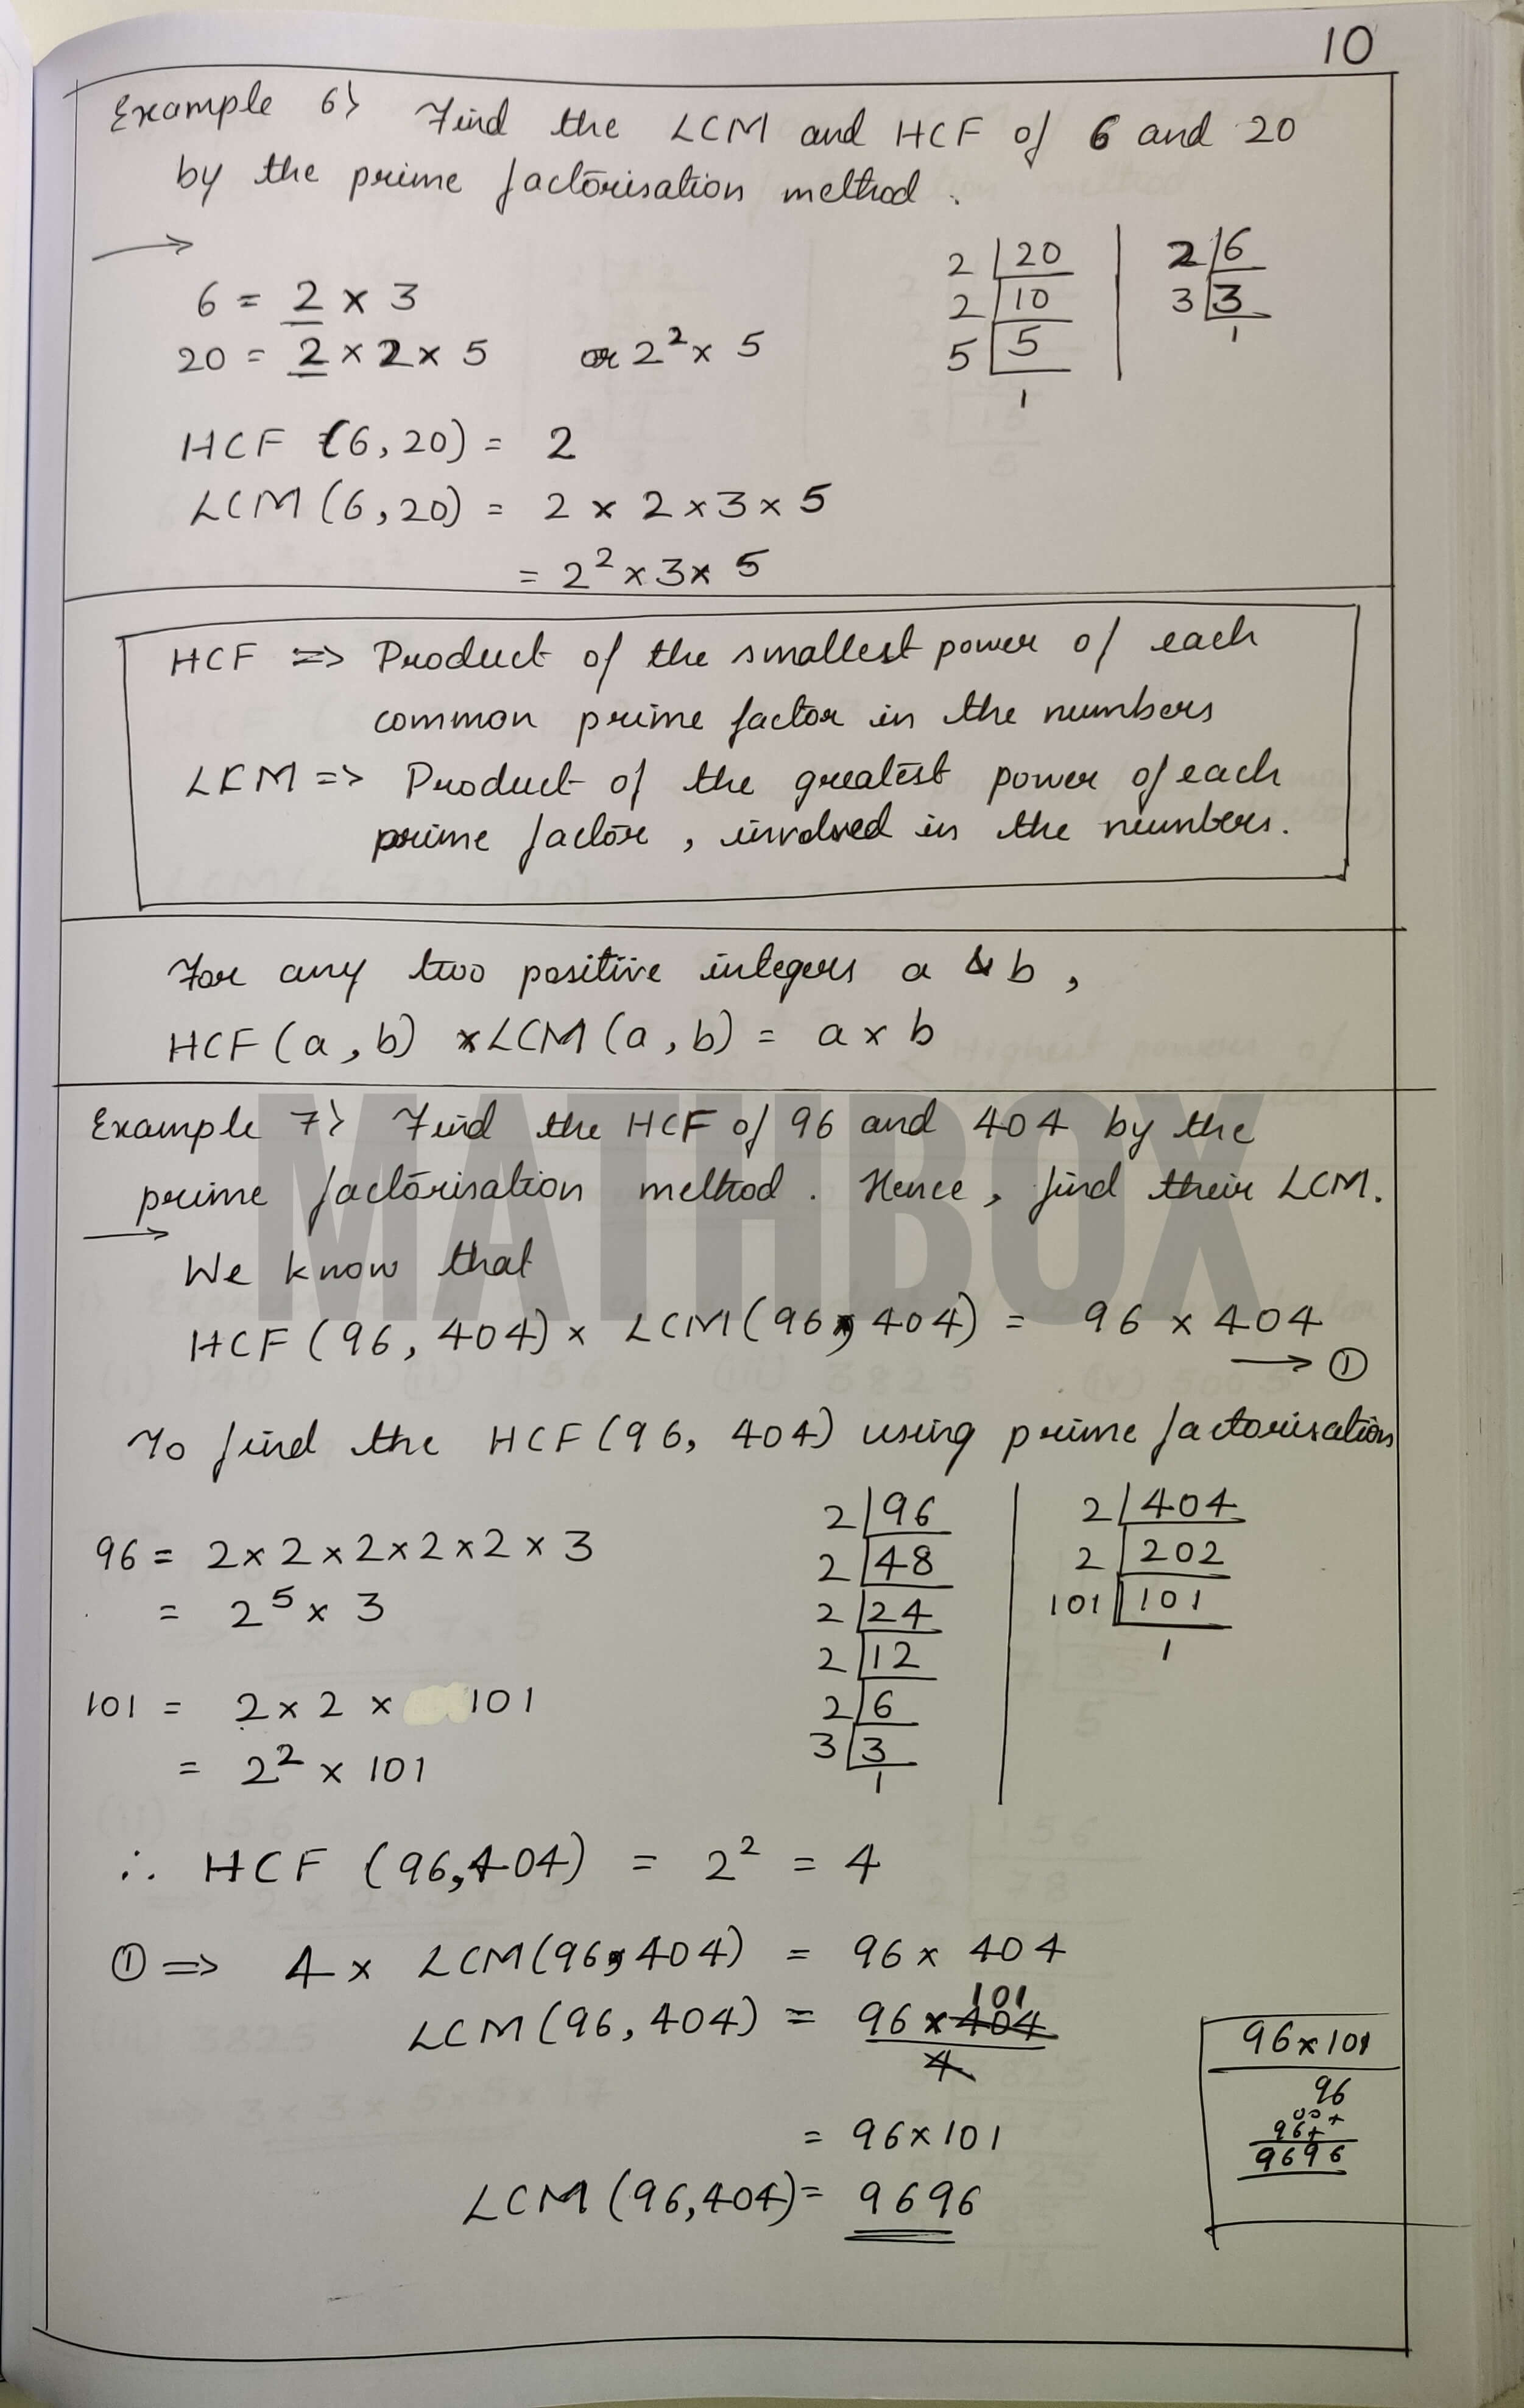 10
Example 6> Find the LCM and HCF of 6 and 20
by the prime factorisation method.
→
2 | 20
2 | 10
5 | 5
1
2 | 6
3 | 3
1
6 = 2 × 3
20 = 2 × 2 × 5 or 2² × 5
HCF (6, 20) = 2
LCM (6, 20) = 2 × 2 × 3 × 5
= 2² × 3 × 5
HCF => Product of the smallest power of each
common prime factor in the numbers
LCM => Product of the greatest power of each
prime factor, involved in the numbers.
For any two positive integers a & b,
HCF (a, b) × LCM (a, b) = a × b
MATHBOX
Example 7> Find the HCF of 96 and 404 by the
prime factorisation method. Hence, find their LCM.
→
We know that
HCF (96, 404) × LCM (96, 404) = 96 × 404
→ ①
To find the HCF (96, 404) using prime factorisation
96 = 2 × 2 × 2 × 2 × 2 × 3
= 2⁵ × 3
101 = 2 × 2 × 101
= 2² × 101
2 | 96
2 | 48
2 | 24
2 | 12
2 | 6
3 | 3
1
2 | 404
2 | 202
101 | 101
1
∴ HCF (96, 404) = 2² = 4
① => 4 × LCM (96, 404) = 96 × 404
101
LCM (96, 404) = 96 × 404
4
= 96 × 101
LCM (96, 404) = 9696
96 × 101
96
00+
96++
9696